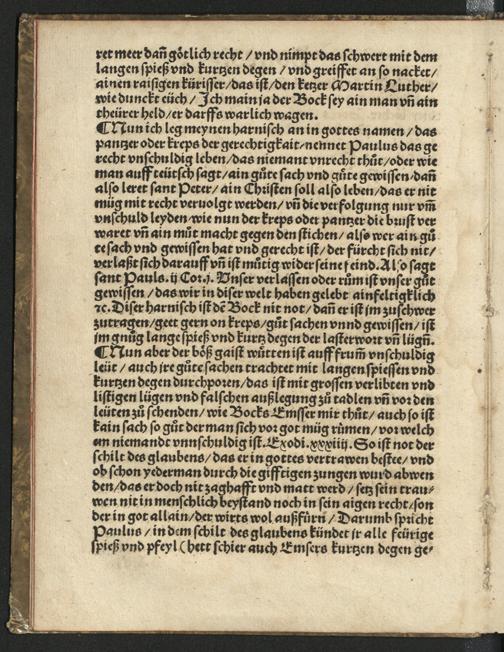 ret meer dañ götlich recht / vnd nimpt das schwert mit dem
langen spieß vnd kurtzen degen / vnd greiffet an so nacket /
ainen raisigen kürisser / das ist / den ketzer Martin Luther /
wie dunckt eüch / Jch main ja der Bock sey ain man vñ ain
theürer held / er darffs warlich wagen.
¶Nun ich leg meynen harnisch an in gottes namen / das
pantzer oder kreps der gerechtigkait / nennet Paulus das ge
recht vnschuldig leben / das niemant vnrecht thůt / oder wie
man auff teütsch sagt / ain gůte sach vnd gůte gewissen / dañ
also leret sant Peter / ain Christen soll also leben / das er nit
můg mit recht veruolgt werden / vñ die verfolgung nur vm̃
vnschuld leyden / wie nun der kreps oder pantzer die brust ver
waret vñ ain můt macht gegen den stichen / also wer ain gů
te sach vnd gewissen hat vnd gerecht ist / der fürcht sich nit /
verlaßt sich darauff vñ ist můtig wider seine feind. Also sagt
sant Pauls. ij Cor.j. Vnser verlassen oder rům ist vnser gůt
gewissen / das wir in diser welt haben gelebt ainfeltigklich
⁊c. Diser harnisch ist dẽ Bock nit not / dañ er ist jm zuschwer
zutragen / geet gern on kreps / gůt sachen vnnd gewissen / ist
jm gnůg lange spieß vnd kurtz degen der lasterwort vñ lügñ.
¶Nun aber der böß gaist wütten ist auff frum̃ vnschuldig
leüt / auch jre gůte sachen trachtet mit langen spiessen vnd
kurtzen degen durchporen / das ist mit grossen verlibten vnd
listigen lügen vnd falschen außlegung zů tadlen vñ vor den
leüten zů schenden / wie Bocks Emsser mir thůt / auch so ist
kain sach so gůt der man sich vor got müg růmen / vor welch
em niemandt vnnschuldig ist. Exodi. xxxiiij. So ist not der
schilt des glaubens / das er in gottes vertrawen bestee / vnd
ob schon yederman durch die gifftigen zungen wurd abwen
den / das er doch nit zaghafft vnd matt werd / setz sein trau⸗
wen nit in menschlich beystand noch in sein aigen recht / son
der in got allain / der wirts wol außfürn / Darumb spricht
Paulus / in dem schilt des glaubens kündet jr alle feürige
spieß vnd pfeyl (hett schier auch Emsers kurtzen degen ge⸗